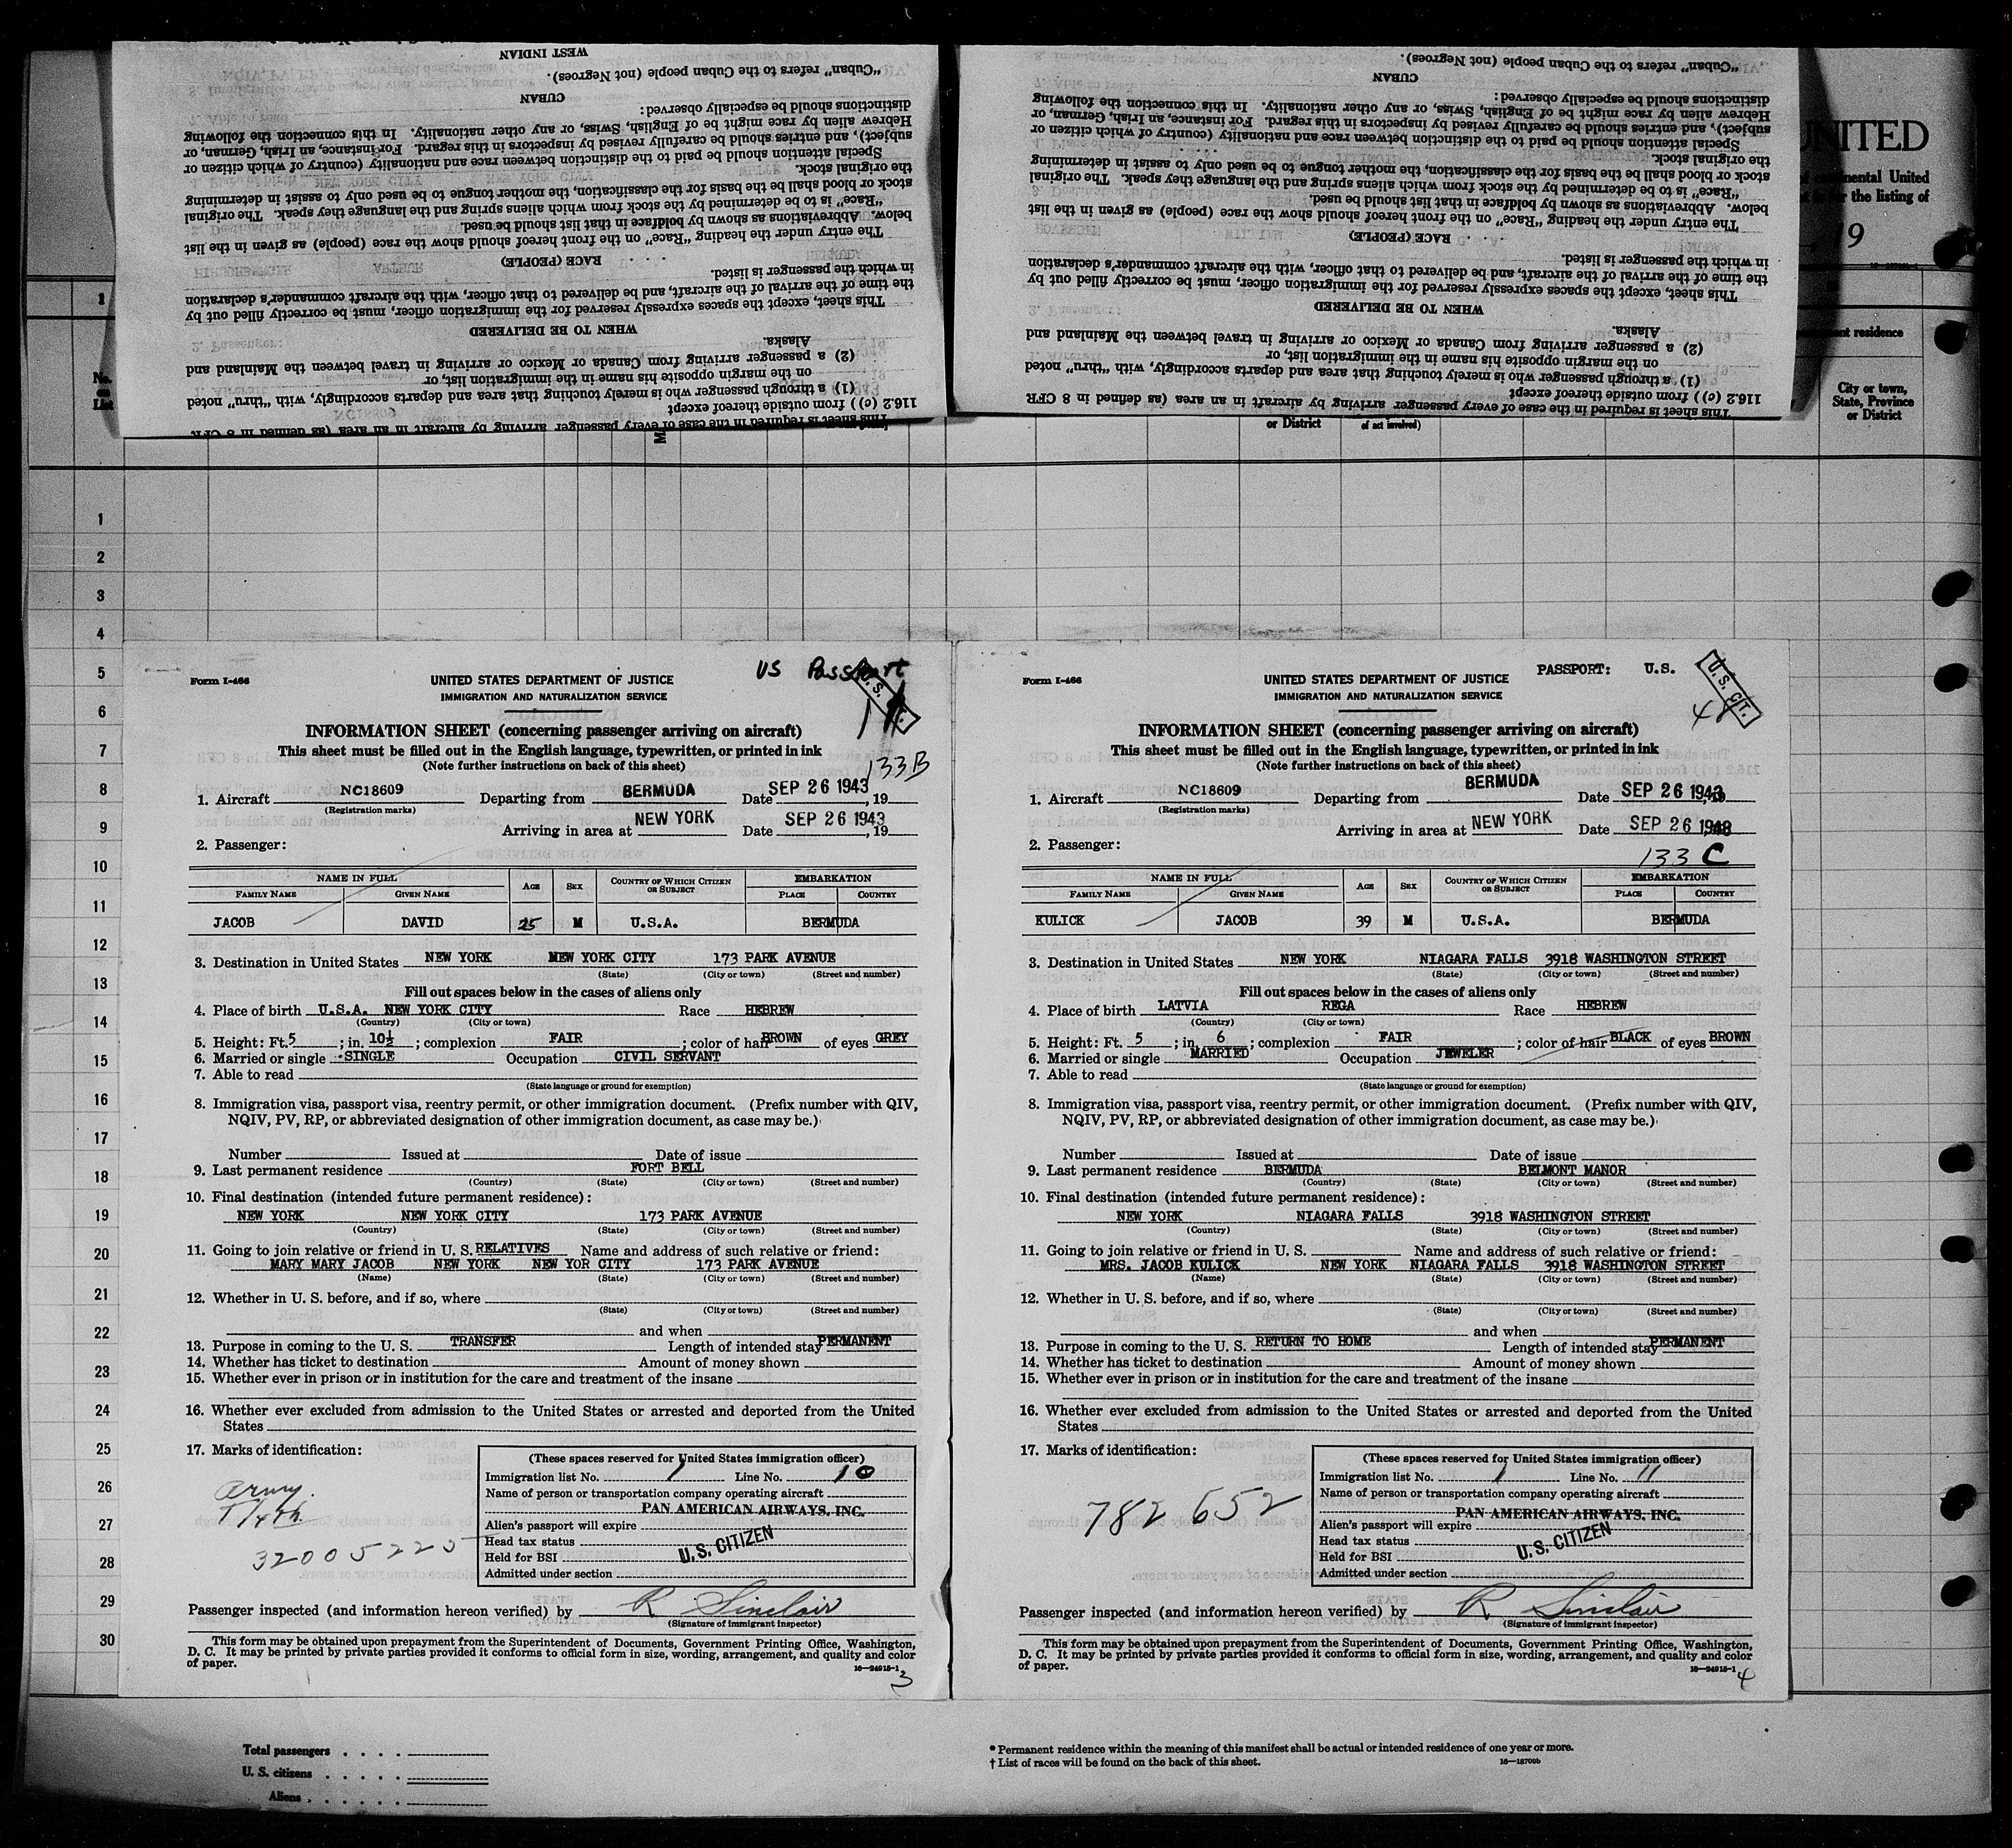 WEST INDIAN
"Cuban" refers to the Cuban people (not Negroes).
CUBAN
distinctions should be especially observed:
Hebrew alien by race might be of English, Swiss, or any other nationality. In this connection the following
subject), and entries should be carefully revised by inspectors in this regard. For instance, an Irish, German, or
Special attention should be paid to the distinction between race and nationality (country of which citizen or
the original stock.
stock or blood shall be the basis for the classification, the mother tongue to be used only to assist in determining
"Race" is to be determined by the stock from which aliens spring and the language they speak. The original
below. Abbreviations as shown by boldface in that list should be used.
The entry under the heading "Race" on the front hereof should show the race (people) as given in the list
RACE (PEOPLE)
in which the passenger is listed.
the time of the arrival of the aircraft, and be delivered to that officer, with the aircraft commander's declaration
This sheet, except the spaces expressly reserved for the immigration officer, must be correctly filled out by
WHEN TO BE DELIVERED
Alaska.
(2) a passenger arriving from Canada or Mexico or arriving in travel between the Mainland and
on the margin opposite his name in the immigration list, or
(1) a through passenger who is merely touching that area and departs accordingly, with "thru" noted
116.2 (c)) from outside thereof except
This sheet is required in the case of every passenger arriving by aircraft in an area (as defined in 8 CFR
"Cuban" refers to the Cuban people (not Negroes).
CUBAN
distinctions should be especially observed:
Hebrew alien by race might be of English, Swiss, or any other nationality. In this connection the following
subject), and entries should be carefully revised by inspectors in this regard. For instance, an Irish, German, or
Special attention should be paid to the distinction between race and nationality (country of which citizen or
the original stock.
stock or blood shall be the basis for the classification, the mother tongue to be used only to assist in determining
"Race" is to be determined by the stock from which aliens spring and the language they speak. The original
below. Abbreviations as shown by boldface in that list should be used.
The entry under the heading "Race" on the front hereof should show the race (people) as given in the list
RACE (PEOPLE)
in which the passenger is listed.
the time of the arrival of the aircraft, and be delivered to that officer, with the aircraft commander's declaration
This sheet, except the spaces expressly reserved for the immigration officer, must be correctly filled out by
WHEN TO BE DELIVERED
Alaska.
(2) a passenger arriving from Canada or Mexico or arriving in travel between the Mainland and
on the margin opposite his name in the immigration list, or
(1) a through passenger who is merely touching that area and departs accordingly, with "thru" noted
116.2 (c)) from outside thereof except
This sheet is required in the case of every passenger arriving by aircraft in an area (as defined in 8 CFR
UNITED
United
for the listing of
19
1
residence
No. on List
City or town, State, Province or District
or District
of act involved)
1
2
3
4
5
6
7
8
9
10
11
12
13
14
15
16
17
18
19
20
21
22
23
24
25
26
27
28
29
30
Form I-466
US Passport
UNITED STATES DEPARTMENT OF JUSTICE
IMMIGRATION AND NATURALIZATION SERVICE
INFORMATION SHEET (concerning passenger arriving on aircraft)
This sheet must be filled out in the English language, typewritten, or printed in ink
(Note further instructions on back of this sheet)
133B
1. Aircraft NC18609 Departing from BERMUDA Date SEP 26 1943, 19
(Registration marks)
Arriving in area at NEW YORK Date SEP 26 1943, 19
2. Passenger:
NAME IN FULL AGE SEX COUNTRY OF WHICH CITIZEN OR SUBJECT EMBARKATION
FAMILY NAME GIVEN NAME PLACE COUNTRY
JACOB DAVID 25 M U.S.A. BERMUDA
3. Destination in United States NEW YORK NEW YORK CITY 173 PARK AVENUE
(State) (City or town) (Street and number)
Fill out spaces below in the cases of aliens only
4. Place of birth U.S.A. NEW YORK CITY Race HEBREW
(Country) (City or town)
5. Height: Ft. 5; in. 10½; complexion FAIR; color of hair BROWN of eyes GREY
6. Married or single SINGLE Occupation CIVIL SERVANT
7. Able to read
(State language or ground for exemption)
8. Immigration visa, passport visa, reentry permit, or other immigration document. (Prefix number with QIV,
NQIV, PV, RP, or abbreviated designation of other immigration document, as case may be.)
Number Issued at Date of issue
9. Last permanent residence FORT BELL
(Country) (State) (City or town) (Street and number)
10. Final destination (intended future permanent residence):
NEW YORK NEW YORK CITY 173 PARK AVENUE
(Country) (State) (City or town) (Street and number)
11. Going to join relative or friend in U. S. RELATIVES Name and address of such relative or friend:
MARY MARY JACOB NEW YORK NEW YOR CITY 173 PARK AVENUE
(Name) (State) (City or town) (Street and number)
12. Whether in U. S. before, and if so, where
(State) (City or town) (Street and number)
and when
13. Purpose in coming to the U. S. TRANSFER Length of intended stay PERMANENT
14. Whether has ticket to destination Amount of money shown
15. Whether ever in prison or in institution for the care and treatment of the insane
16. Whether ever excluded from admission to the United States or arrested and deported from the United
States
17. Marks of identification:
Army.
T/4th
32005225
(These spaces reserved for United States immigration officer)
Immigration list No. 1 Line No. 10
Name of person or transportation company operating aircraft
PAN AMERICAN AIRWAYS, INC.
Alien's passport will expire
Head tax status
U.S. CITIZEN
Held for BSI
Admitted under section
Passenger inspected (and information hereon verified) by R Sinclair
(Signature of immigrant inspector)
This form may be obtained upon prepayment from the Superintendent of Documents, Government Printing Office, Washington,
D. C. It may be printed by private parties provided it conforms to official form in size, wording, arrangement, and quality and color
of paper.
16—24915-1
3
Form I-466
PASSPORT: U.S.
U.S. CIT.
UNITED STATES DEPARTMENT OF JUSTICE
IMMIGRATION AND NATURALIZATION SERVICE
INFORMATION SHEET (concerning passenger arriving on aircraft)
This sheet must be filled out in the English language, typewritten, or printed in ink
(Note further instructions on back of this sheet)
1. Aircraft NC18609 Departing from BERMUDA Date SEP 26 1943
(Registration marks)
Arriving in area at NEW YORK Date SEP 26 1943
2. Passenger:
133 C
NAME IN FULL AGE SEX COUNTRY OF WHICH CITIZEN OR SUBJECT EMBARKATION
FAMILY NAME GIVEN NAME PLACE COUNTRY
KULICK JACOB 39 M U.S.A. BERMUDA
3. Destination in United States NEW YORK NIAGARA FALLS 3918 WASHINGTON STREET
(State) (City or town) (Street and number)
Fill out spaces below in the cases of aliens only
4. Place of birth LATVIA REGA Race HEBREW
(Country) (City or town)
5. Height: Ft. 5; in. 6; complexion FAIR; color of hair BLACK of eyes BROWN
6. Married or single MARRIED Occupation JEWELER
7. Able to read
(State language or ground for exemption)
8. Immigration visa, passport visa, reentry permit, or other immigration document. (Prefix number with QIV,
NQIV, PV, RP, or abbreviated designation of other immigration document, as case may be.)
Number Issued at Date of issue
9. Last permanent residence BERMUDA BELMONT MANOR
(Country) (State) (City or town) (Street and number)
10. Final destination (intended future permanent residence):
NEW YORK NIAGARA FALLS 3918 WASHINGTON STREET
(Country) (State) (City or town) (Street and number)
11. Going to join relative or friend in U. S. Name and address of such relative or friend:
MRS. JACOB KULICK NEW YORK NIAGARA FALLS 3918 WASHINGTON STREET
(Name) (State) (City or town) (Street and number)
12. Whether in U. S. before, and if so, where
(State) (City or town) (Street and number)
and when
13. Purpose in coming to the U. S. RETURN TO HOME Length of intended stay PERMANENT
14. Whether has ticket to destination Amount of money shown
15. Whether ever in prison or in institution for the care and treatment of the insane
16. Whether ever excluded from admission to the United States or arrested and deported from the United
States
17. Marks of identification:
782652
(These spaces reserved for United States immigration officer)
Immigration list No. 1 Line No. 11
Name of person or transportation company operating aircraft
PAN AMERICAN AIRWAYS, INC.
Alien's passport will expire
Head tax status
U.S. CITIZEN
Held for BSI
Admitted under section
Passenger inspected (and information hereon verified) by R Sinclair
(Signature of immigrant inspector)
This form may be obtained upon prepayment from the Superintendent of Documents, Government Printing Office, Washington,
D. C. It may be printed by private parties provided it conforms to official form in size, wording, arrangement, and quality and color
of paper.
16—24915-1
4
Total passengers
U. S. citizens
Aliens
* Permanent residence within the meaning of this manifest shall be actual or intended residence of one year or more.
† List of races will be found on the back of this sheet.
16—18709b